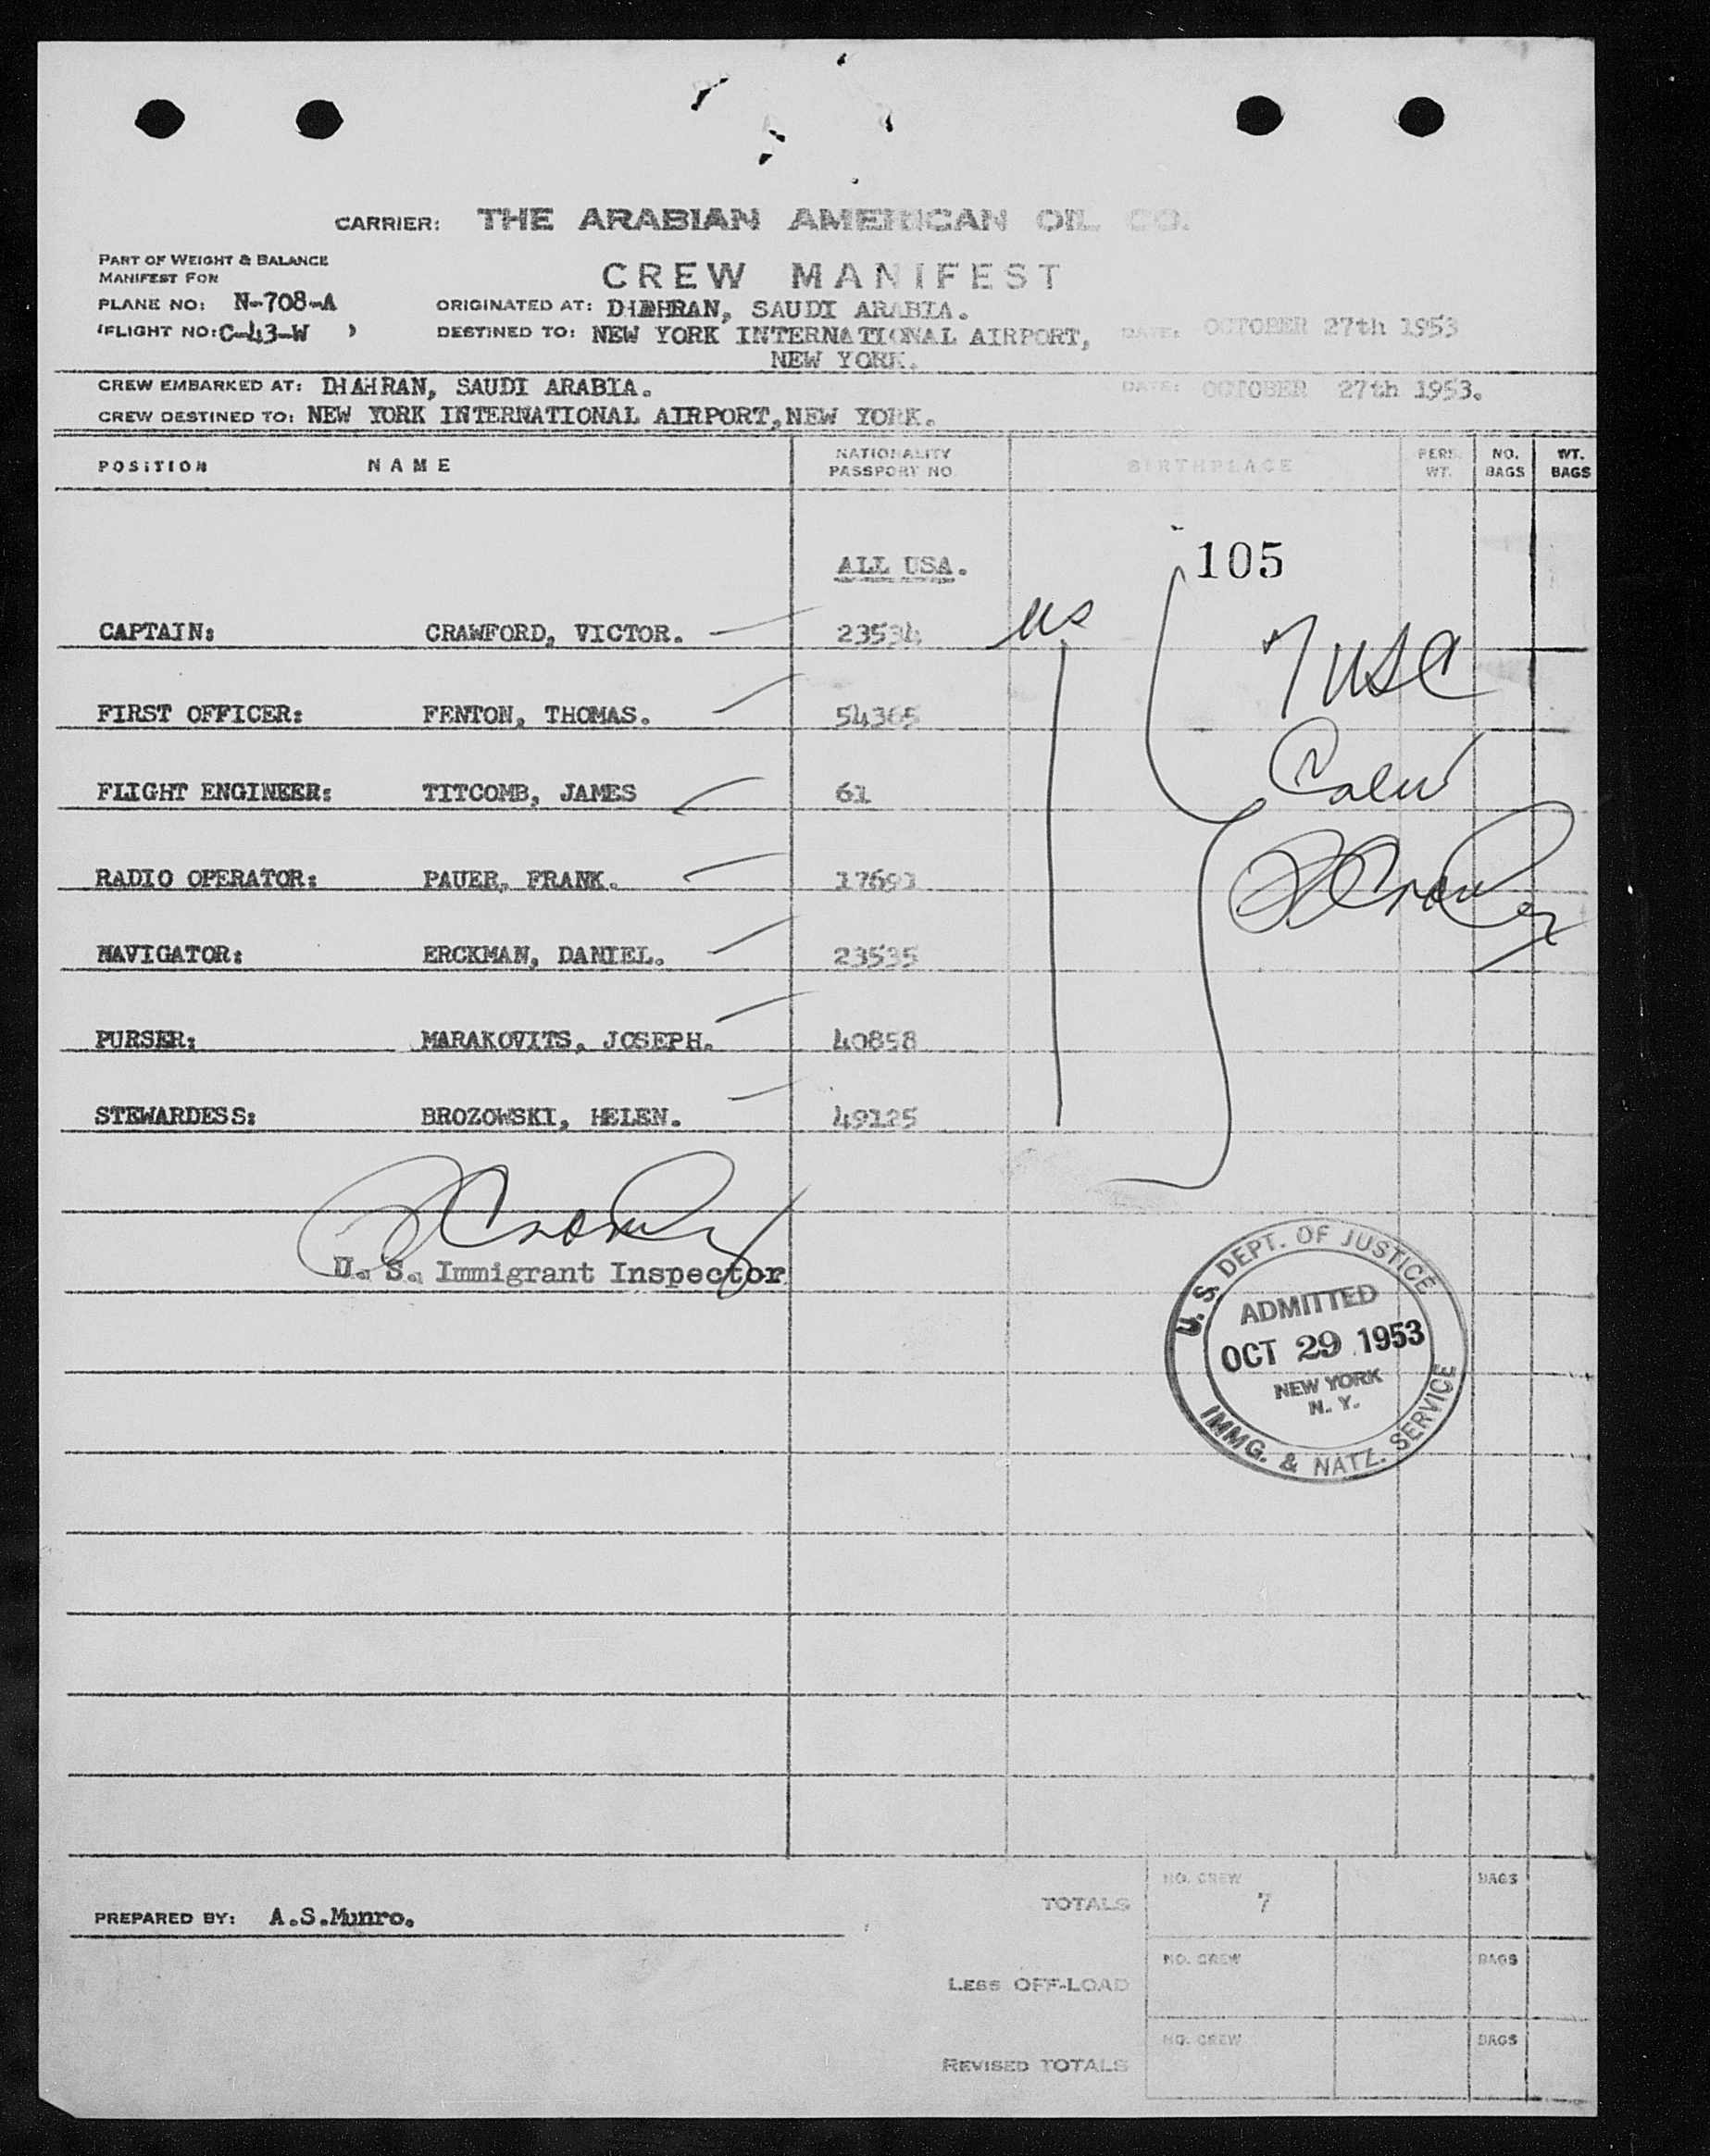 CARRIER: THE ARABIAN AMERICAN OIL CO.
PART OF WEIGHT & BALANCE
MANIFEST FOR
CREW MANIFEST
PLANE NO: N-708-A ORIGINATED AT: DHAHRAN, SAUDI ARABIA.
(FLIGHT NO: C-43-W ) DESTINED TO: NEW YORK INTERNATIONAL AIRPORT, DATE: OCTOBER 27th 1953
NEW YORK.
CREW EMBARKED AT: DHAHRAN, SAUDI ARABIA. DATE: OCTOBER 27th 1953.
CREW DESTINED TO: NEW YORK INTERNATIONAL AIRPORT, NEW YORK.
POSITION NAME NATIONALITY PASSPORT NO BIRTHPLACE PERS. WT. NO. BAGS WT. BAGS
ALL USA. 105
CAPTAIN: CRAWFORD, VICTOR. 23534 US
7 USC
FIRST OFFICER: FENTON, THOMAS. 54365
FLIGHT ENGINEER: TITCOMB, JAMES 61
RADIO OPERATOR: PAUER, FRANK. 17691
NAVIGATOR: ERCKMAN, DANIEL. 23535
PURSER: MARAKOVITS, JOSEPH. 40858
STEWARDESS: BROZOWSKI, HELEN. 49125
U. S. Immigrant Inspector
U. S. DEPT. OF JUSTICE
ADMITTED
OCT 29 1953
NEW YORK
N. Y.
IMMG. & NATZ. SERVICE
TOTALS NO. CREW 7 BAGS
PREPARED BY: A.S.Munro.
LESS OFF-LOAD NO. CREW BAGS
REVISED TOTALS NO. CREW BAGS